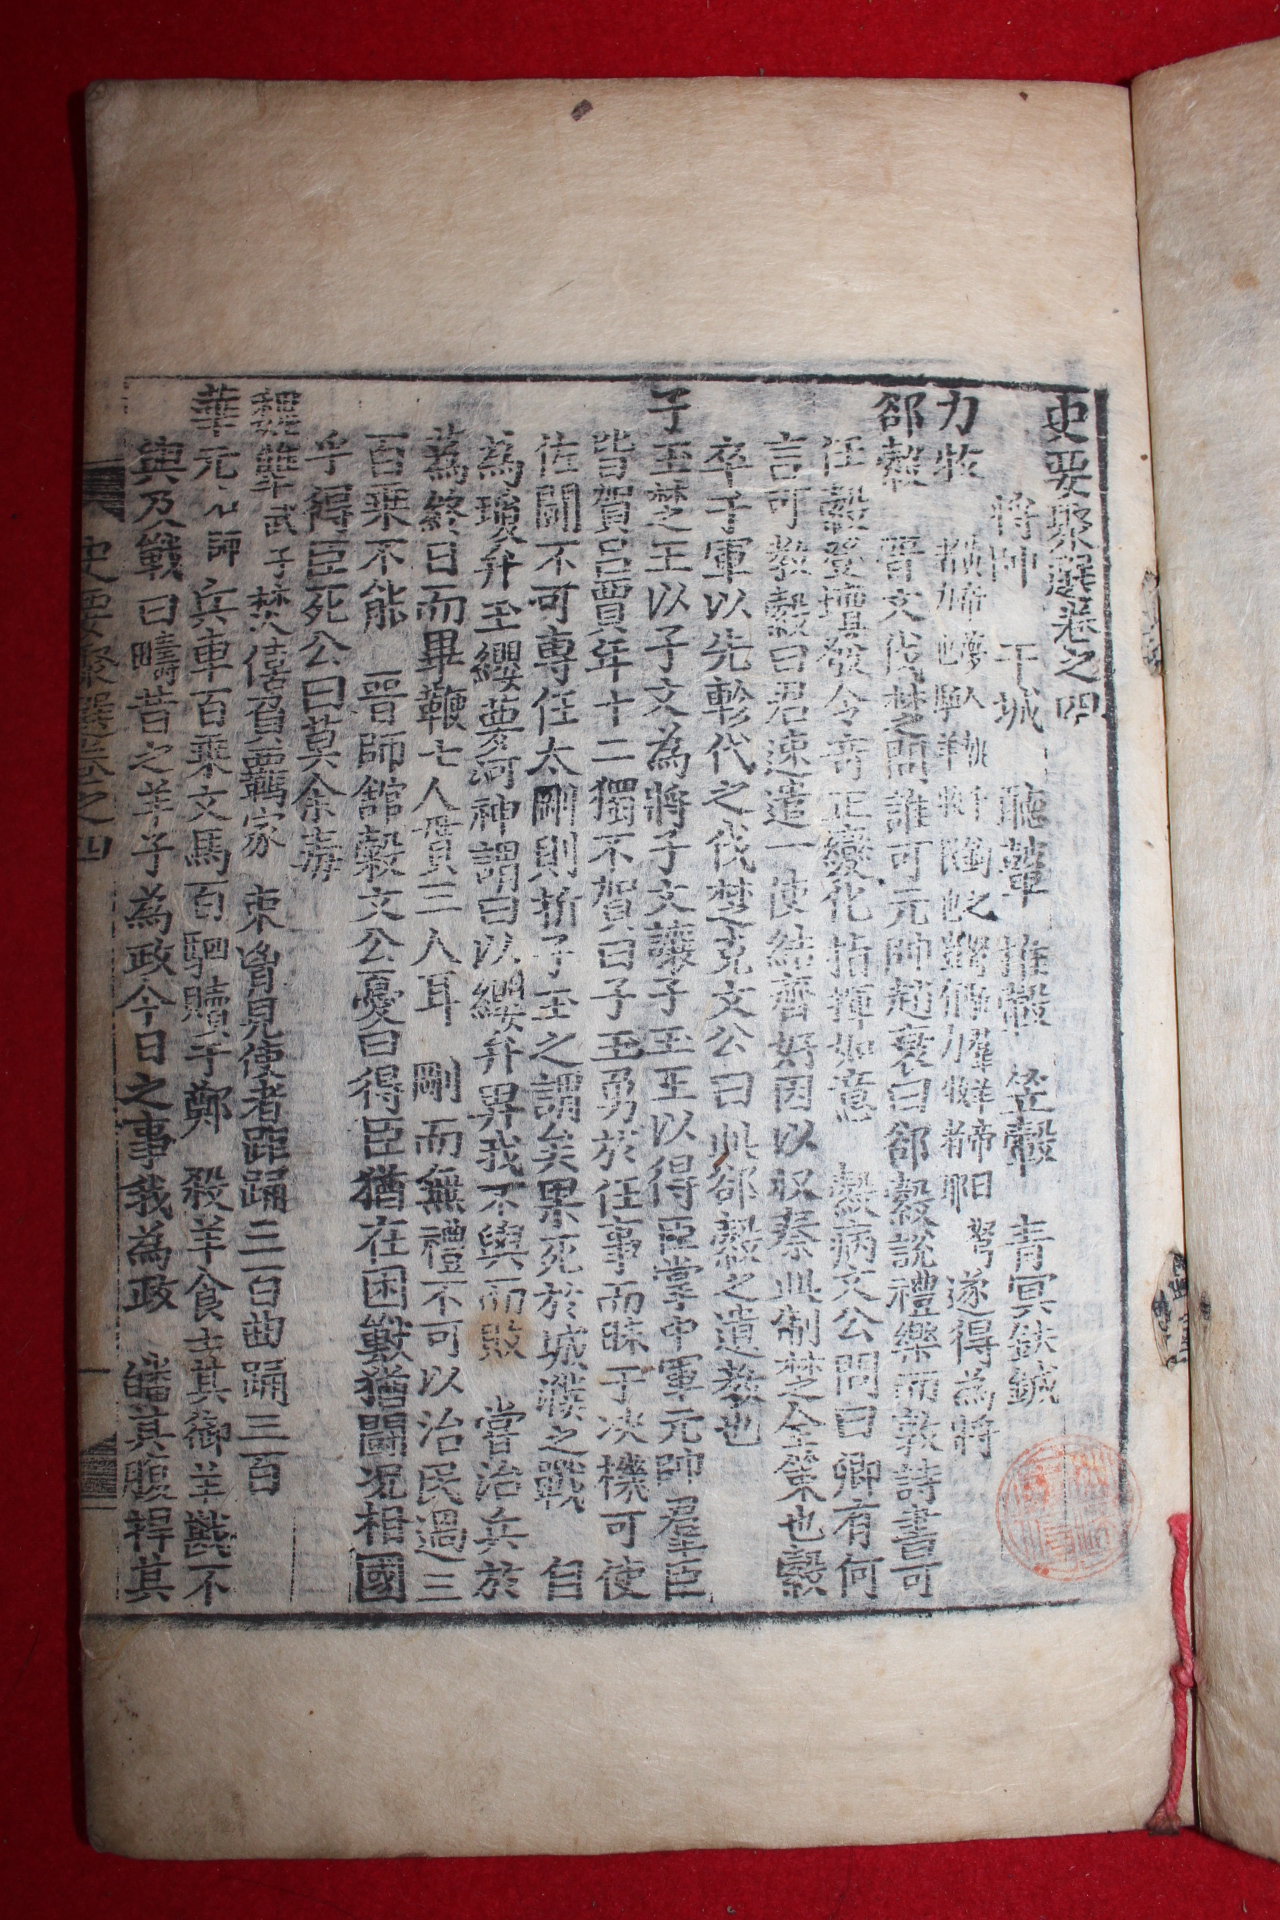 史要聚選卷之四
將帥 干城 聽鼙 推轂 笠轂 青冥鈇鉞
力牧 夢人執千勻之弩 羊 力牧者耶 遂得為將
郤縠 晋文伐楚問誰可元帥趙衰曰郤縠說禮樂而敦詩書可
任縠登壇發令奇正變化指揮如意 縠病文公問曰卿有何
言可教縠曰君速遣一使結齊好因以収秦與制楚全策也縠
卒子軍以先軫代之伐楚克文公曰此郤縠之遺教也
子玉楚之王以子文為將子文讓子玉王以得臣掌中軍元帥群臣
皆賀呂賈年十二獨不賀曰子玉勇於任事而昧于决機可使
佐鬪不可專任太剛則折子玉之謂矣果死於城濮之戰 自
為瓊弁玉纓夢河神謂曰以纓弁畀我不與而敗 嘗治兵於
蒍終日而畢鞭七人貫三人耳 剛而無禮不可以治民過三
百乘不能 晋師舘穀文公憂曰得臣猶在困獸猶鬪况相國
乎得臣死公曰莫余毒
魏犨武子 僖負羈家 束胷見使者距踊三百曲踊三百
華元 師 兵車百乘文馬百駟贖于鄭 殺羊食士其御羊羹不
與及戰曰疇昔之羊子為政今日之事我為政 皤其腹睅其
史要聚選卷之四